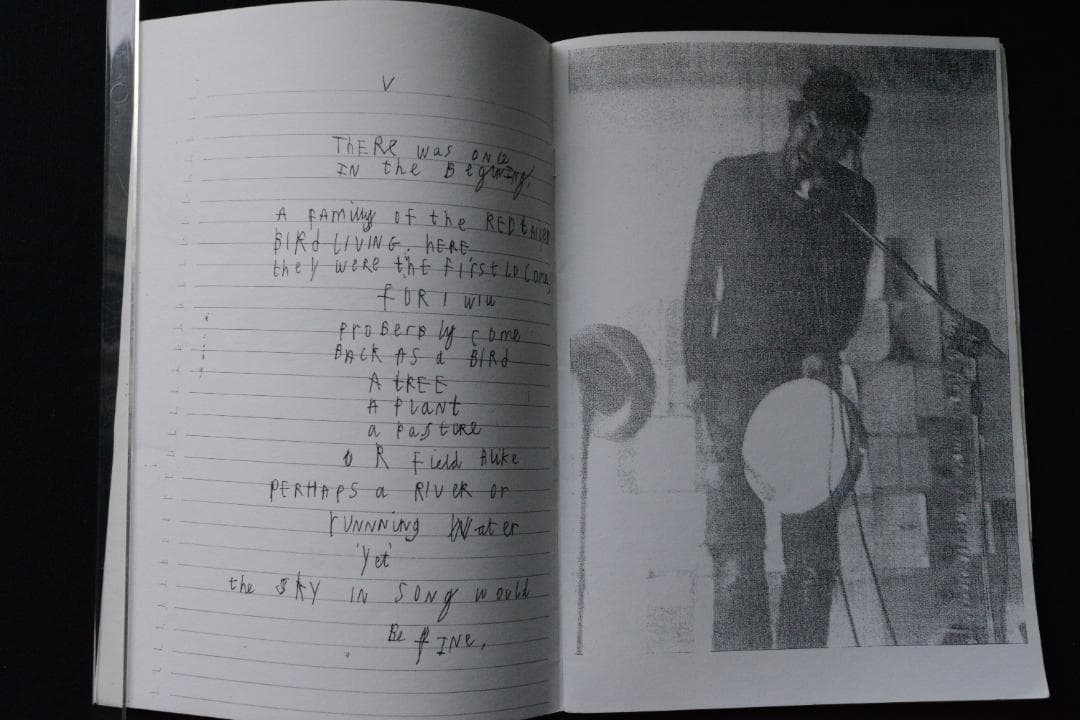 V
ThERE was once
IN the BegINNINg,
A fAMily of the REDtAILED
BIRd LIVING. hERE
they WERE thE fIRSt to COME,
fOR I will
PROBERBly come
BACK AS a BIRd
A tREE
A PlANt
a PAStURE
OR Field Alike
PERHAPS a RIVER or
rUNNNiNg Water
'Yet'
the SKY IN SONg would
Be fINE,